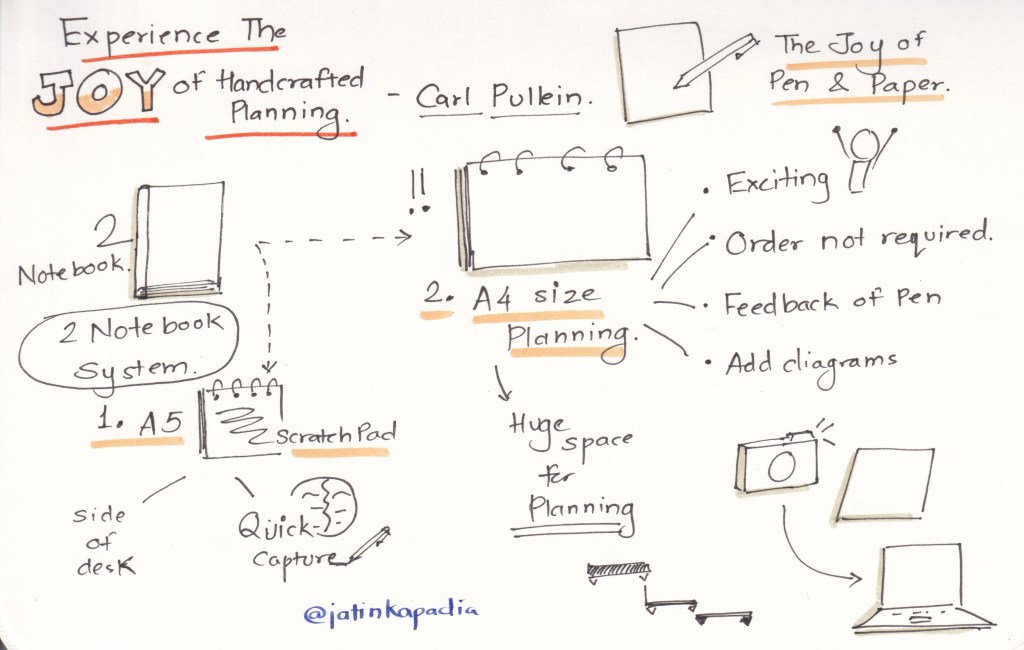 Experience The
JOY of Handcrafted
Planning.
- Carl Pullein.
The Joy of
Pen & Paper.
2
Notebook.
2 Notebook
System.
1. A5
Scratch Pad
side
of
desk
Quick
Capture
!!
2. A4 size
Planning.
Huge
space
for
Planning
• Exciting
• Order not required.
• Feedback of Pen
• Add diagrams
@jatinkapadia